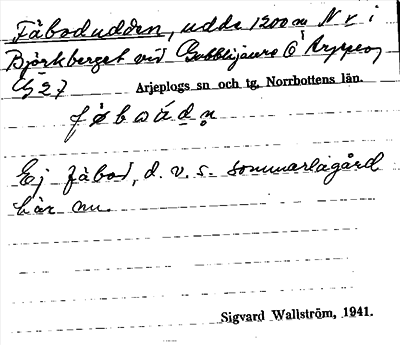 Fäbodudden, udde 1200 m N v i
Björkberget vid Gubblijaure
27
Arjeplogs sn och tg, Norrbottens län.
Ej fäbod, d. v. s. sommarlagård
här nu.
Sigvard Wallström, 1941.